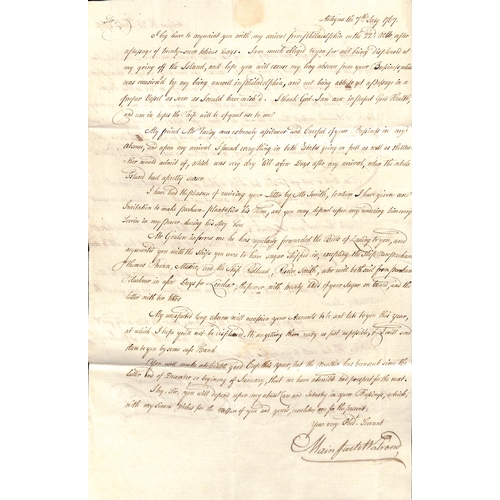 Sir, Antigua the 7th July 1767.
I beg leave to acquaint you with my arrival from Philadelphia on the 22d Ulto, after
a passage of twenty seven tedious days. I am much obliged to you for not being displeased at
my going off the Island, and hope you will excuse my long absence from your Business, which
was occasion'd by my being unwell in Philadelphia, and not being able to get a passage in a
proper Vessel as soon as I could have wish'd. I thank God I am now in perfect good Health,
and am in hopes the Trip will be of great use to me.
My friend Mr was extremely assiduous and Careful of your Business in my
absence, and upon my arrival I found everything in both Estates going on full as well as the Weather
would admit of, which was very dry till a few Days after my arrival, when the whole
Island had a pretty season.
I have had the pleasure of receiving your Letter by Mr Smith, to whom I have given an
Invitation to make Parham plantation his Home, and you may depend upon my rendering him every
Service in my power during his stay here.
Mr informs me he has regularly forwarded the Bills of Lading to you, and
acquainted you with the Ships you were to have sugar shipped in, excepting the Ship
Thomas Master, and the Ship Smith, who will both sail from Parham
Harbour in a few Days for London, the former with twenty Hhds of your Sugar on board, and the
latter with
My unexpected long absence will occasion your Accounts to be sent late to you this year,
at which I hope you'll not be displeased. I'm getting them ready as fast as possible, & will send
them to you by some safe Hand.
You will make a good Crop this year, but the weather has been such since the
latter end of December or beginning of January, that we have a terrible bad prospect for the next.
I beg, Sir, you will depend upon my utmost Care and Industry in your Business, which,
with my sincere Wishes for the Welfare of you and yours, concludes me for the present,
Your very Obt. Servant
Main Swete Walrond